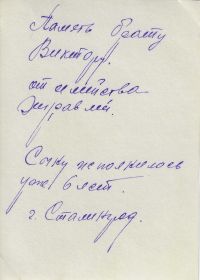 Память брату
Виктору.
от семейства
Журавлей.
Сынку исполнилось
уже 6 лет.
г. Сталинград.